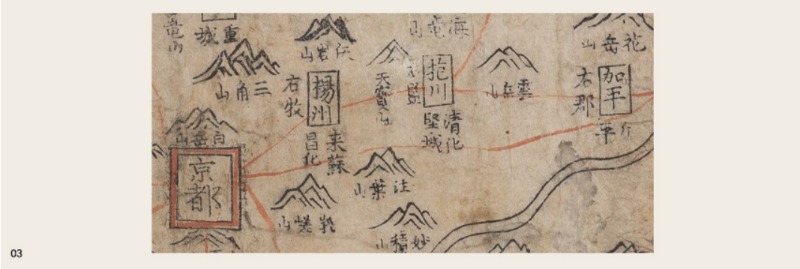 花岳山
加平
右郡
雲岳山
抱川
清化
堅城
天寶山
楊州
右牧
来蘇
昌化
三角山
重城
白岳山
京都
注葉山
妙積山
03